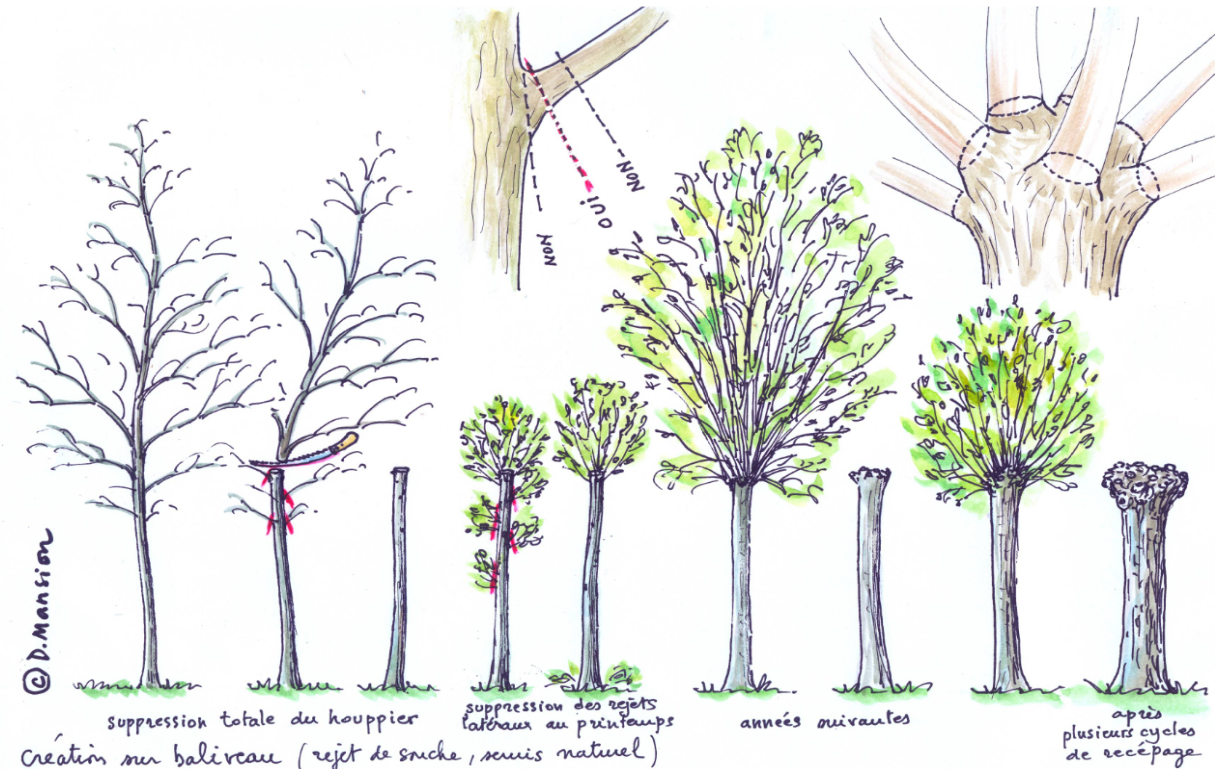 NON
OUI
NON
© D. Mansion
suppression totale du houppier
suppression des rejets
latéraux au printemps
années suivantes
après
plusieurs cycles
de recépage
Création sur baliveau (rejet de souche, semis naturel)